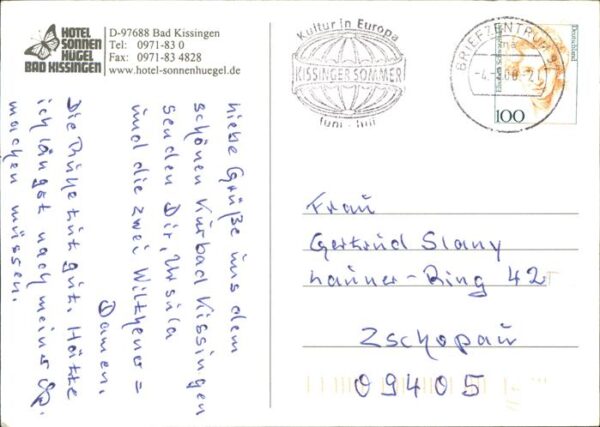 HOTEL
SONNEN
HÜGEL
BAD KISSINGEN
D-97688 Bad Kissingen
Tel: 0971-83 0
Fax: 0971-83 4828
www.hotel-sonnenhuegel.de
Kultur in Europa
KISSINGER SOMMER
Juni - Juli
BRIEFZENTRUM 97
Deutschland
100
liebe Grüße aus dem
schönen Kurbad Kissingen
senden Dir, Ursula
und die zwei Wilthener=
Damen.
Die Ruhe tut gut. Hätte
ich längst nach meiner Op.
machen müssen.
Frau
Gertrud Slany
Launer-Ring 42
Zschopau
09405